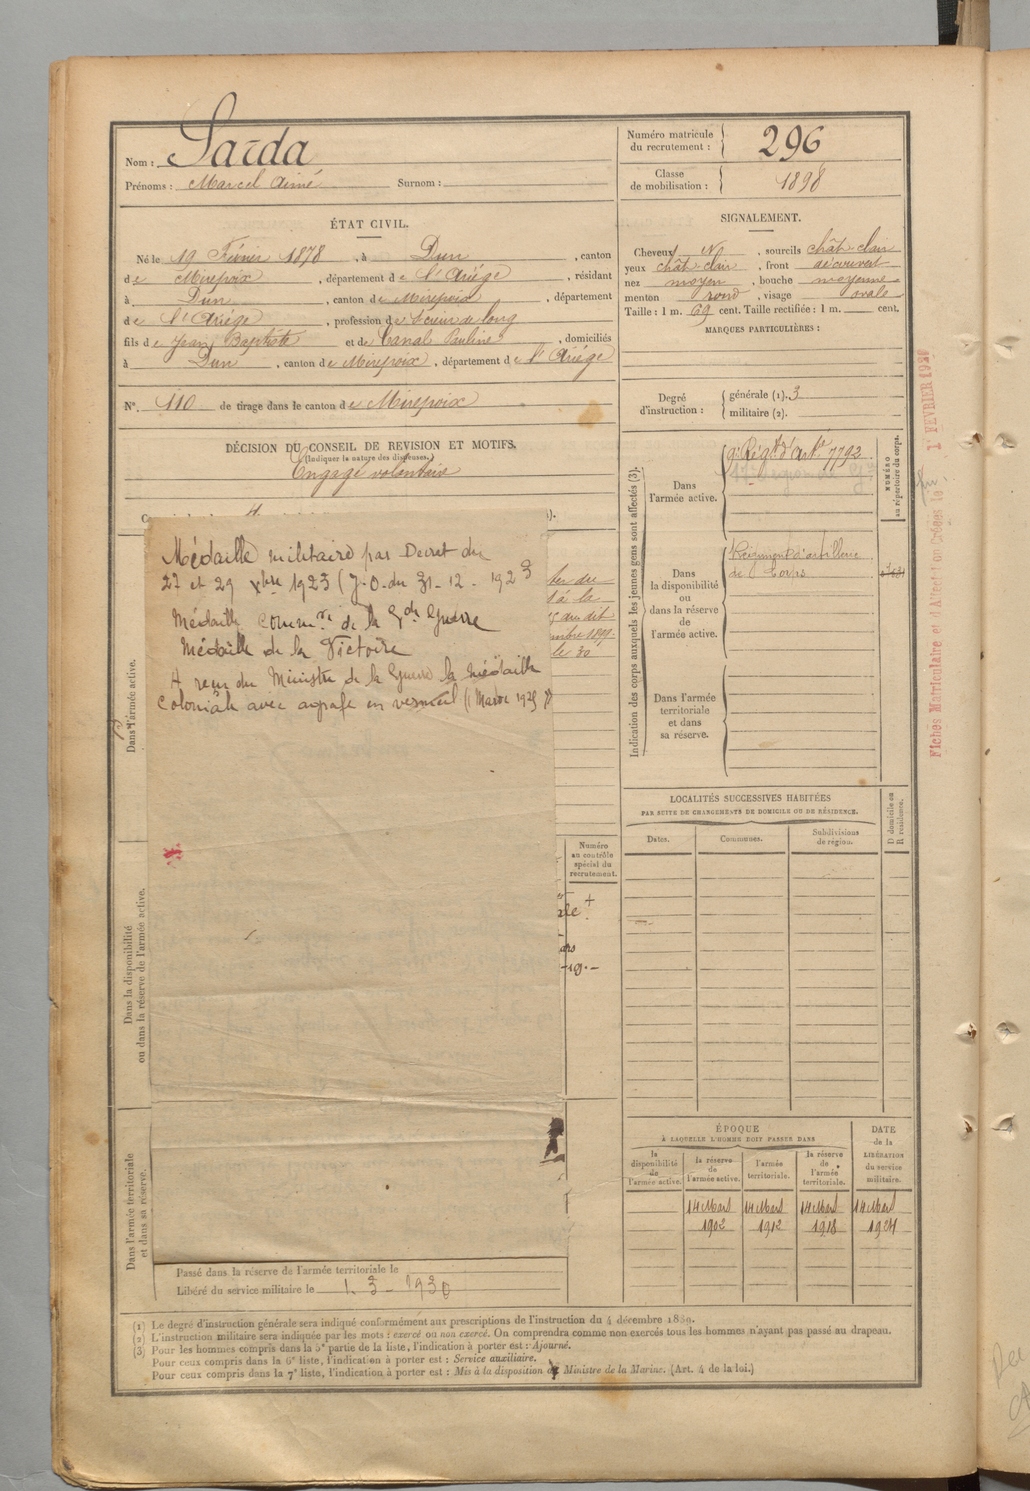 Nom : Sarda
Prénoms : Marcel Aimé Surnom :
Numéro matricule du recrutement : 296
Classe de mobilisation : 1898
ÉTAT CIVIL.
Né le 19 Février 1878, à Dun, canton
de Mirepoix, département de l'Ariège, résidant
à Dun, canton de Mirepoix, département
de l'Ariège, profession de Scieur de long
fils de Jean Baptiste et de Canal Pauline, domiciliés
à Dun, canton de Mirepoix, département de l'Ariège
N° 110 de tirage dans le canton de Mirepoix
SIGNALEMENT.
Cheveux N, sourcils chât clair
yeux chât clair, front découvert
nez moyen, bouche moyenne
menton rond, visage ovale
Taille : 1 m. 69 cent. Taille rectifiée : 1 m. cent.
MARQUES PARTICULIÈRES :
Degré d'instruction :
générale (1). 3
militaire (2).
DÉCISION DU CONSEIL DE REVISION ET MOTIFS.
(Indiquer la nature des dispenses.)
Engagé volontaire
Médaille militaire par Decret du
27 et 29 xbre 1923 (J.O. du 31-12-1923
Médaille Comm.ve de la Gde Guerre
Médaille de la Victoire
A reçu du Ministre de la Guerre la Médaille
Coloniale avec agrafe en vermeil
ber du
à la
du dit
mbre 1899.
le 30
Dans l'armée active.
Dans la disponibilité
ou dans la réserve de l'armée active.
Dans l'armée territoriale
et dans sa réserve.
Numéro
au contrôle
spécial du
recrutement.
Passé dans la réserve de l'armée territoriale le
Libéré du service militaire le 1. 3 - 1930
Indication des corps auxquels les jeunes gens sont affectés (3).
NUMÉRO
au répertoire du corps.
Dans
l'armée active.
9e Régt d'Arte 7792
Dans
la disponibilité
ou
dans la réserve
de
l'armée active.
Régiment d'artillerie
de Corps
Dans l'armée
territoriale
et dans
sa réserve.
LOCALITÉS SUCCESSIVES HABITÉES
PAR SUITE DE CHANGEMENTS DE DOMICILE OU DE RÉSIDENCE.
Dates. Communes. Subdivisions de région.
D domicile ou
R résidence.
ÉPOQUE
À LAQUELLE L'HOMME DOIT PASSER DANS
DATE
de la
LIBÉRATION
du service
militaire.
la disponibilité de l'armée active.
la réserve de l'armée active.
l'armée territoriale.
la réserve de l'armée territoriale.
14 Mars 14 Mars 14 Mars 14 Mars
1902 1912 1918 1924
Fiches Matriculaire et d'Affectation Créées le 1er FEVRIER 1920
(1) Le degré d'instruction générale sera indiqué conformément aux prescriptions de l'instruction du 4 décembre 1889.
(2) L'instruction militaire sera indiquée par les mots : exercé ou non exercé. On comprendra comme non exercés tous les hommes n'ayant pas passé au drapeau.
(3) Pour les hommes compris dans la 5e partie de la liste, l'indication à porter est : Ajourné.
Pour ceux compris dans la 6e liste, l'indication à porter est : Service auxiliaire.
Pour ceux compris dans la 7e liste, l'indication à porter est : Mis à la disposition du Ministre de la Marine. (Art. 4 de la loi.)